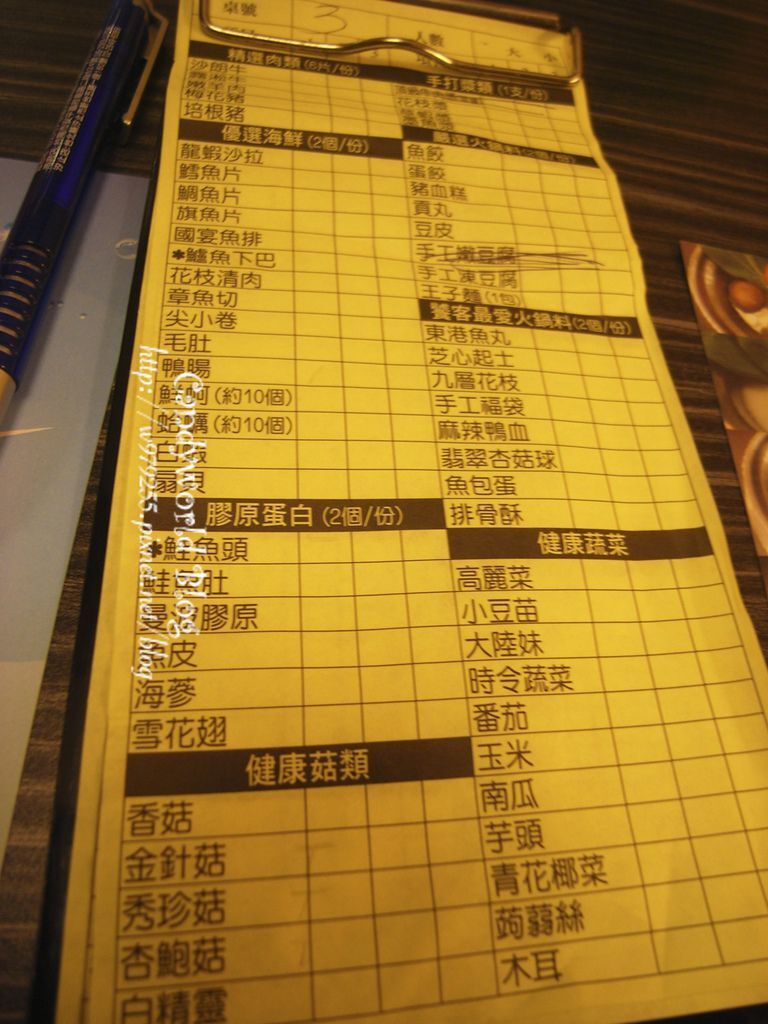 桌號 3 人數 大 小
精選肉類(6片/份)
沙朗牛
嫩羊肉
梅花豬
培根豬
優選海鮮(2個/份)
龍蝦沙拉
鱈魚片
鯛魚片
旗魚片
國宴魚排
*鱸魚下巴
花枝清肉
章魚切
尖小卷
毛肚
鴨腸
鮮蚵(約10個)
蛤蠣(約10個)
白蝦
扇貝
膠原蛋白(2個/份)
*鮭魚頭
鮭魚肚
曼波膠原
魚皮
海蔘
雪花翅
健康菇類
香菇
金針菇
秀珍菇
杏鮑菇
白精靈
手打漿類(1支/份)
花枝漿
嚴選火鍋料(2個/份)
魚餃
蛋餃
豬血糕
貢丸
豆皮
手工嫩豆腐
手工凍豆腐
王子麵(1包)
饕客最愛火鍋料(2個/份)
東港魚丸
芝心起士
九層花枝
手工福袋
麻辣鴨血
翡翠杏菇球
魚包蛋
排骨酥
健康蔬菜
高麗菜
小豆苗
大陸妹
時令蔬菜
番茄
玉米
南瓜
芋頭
青花椰菜
蒟蒻絲
木耳